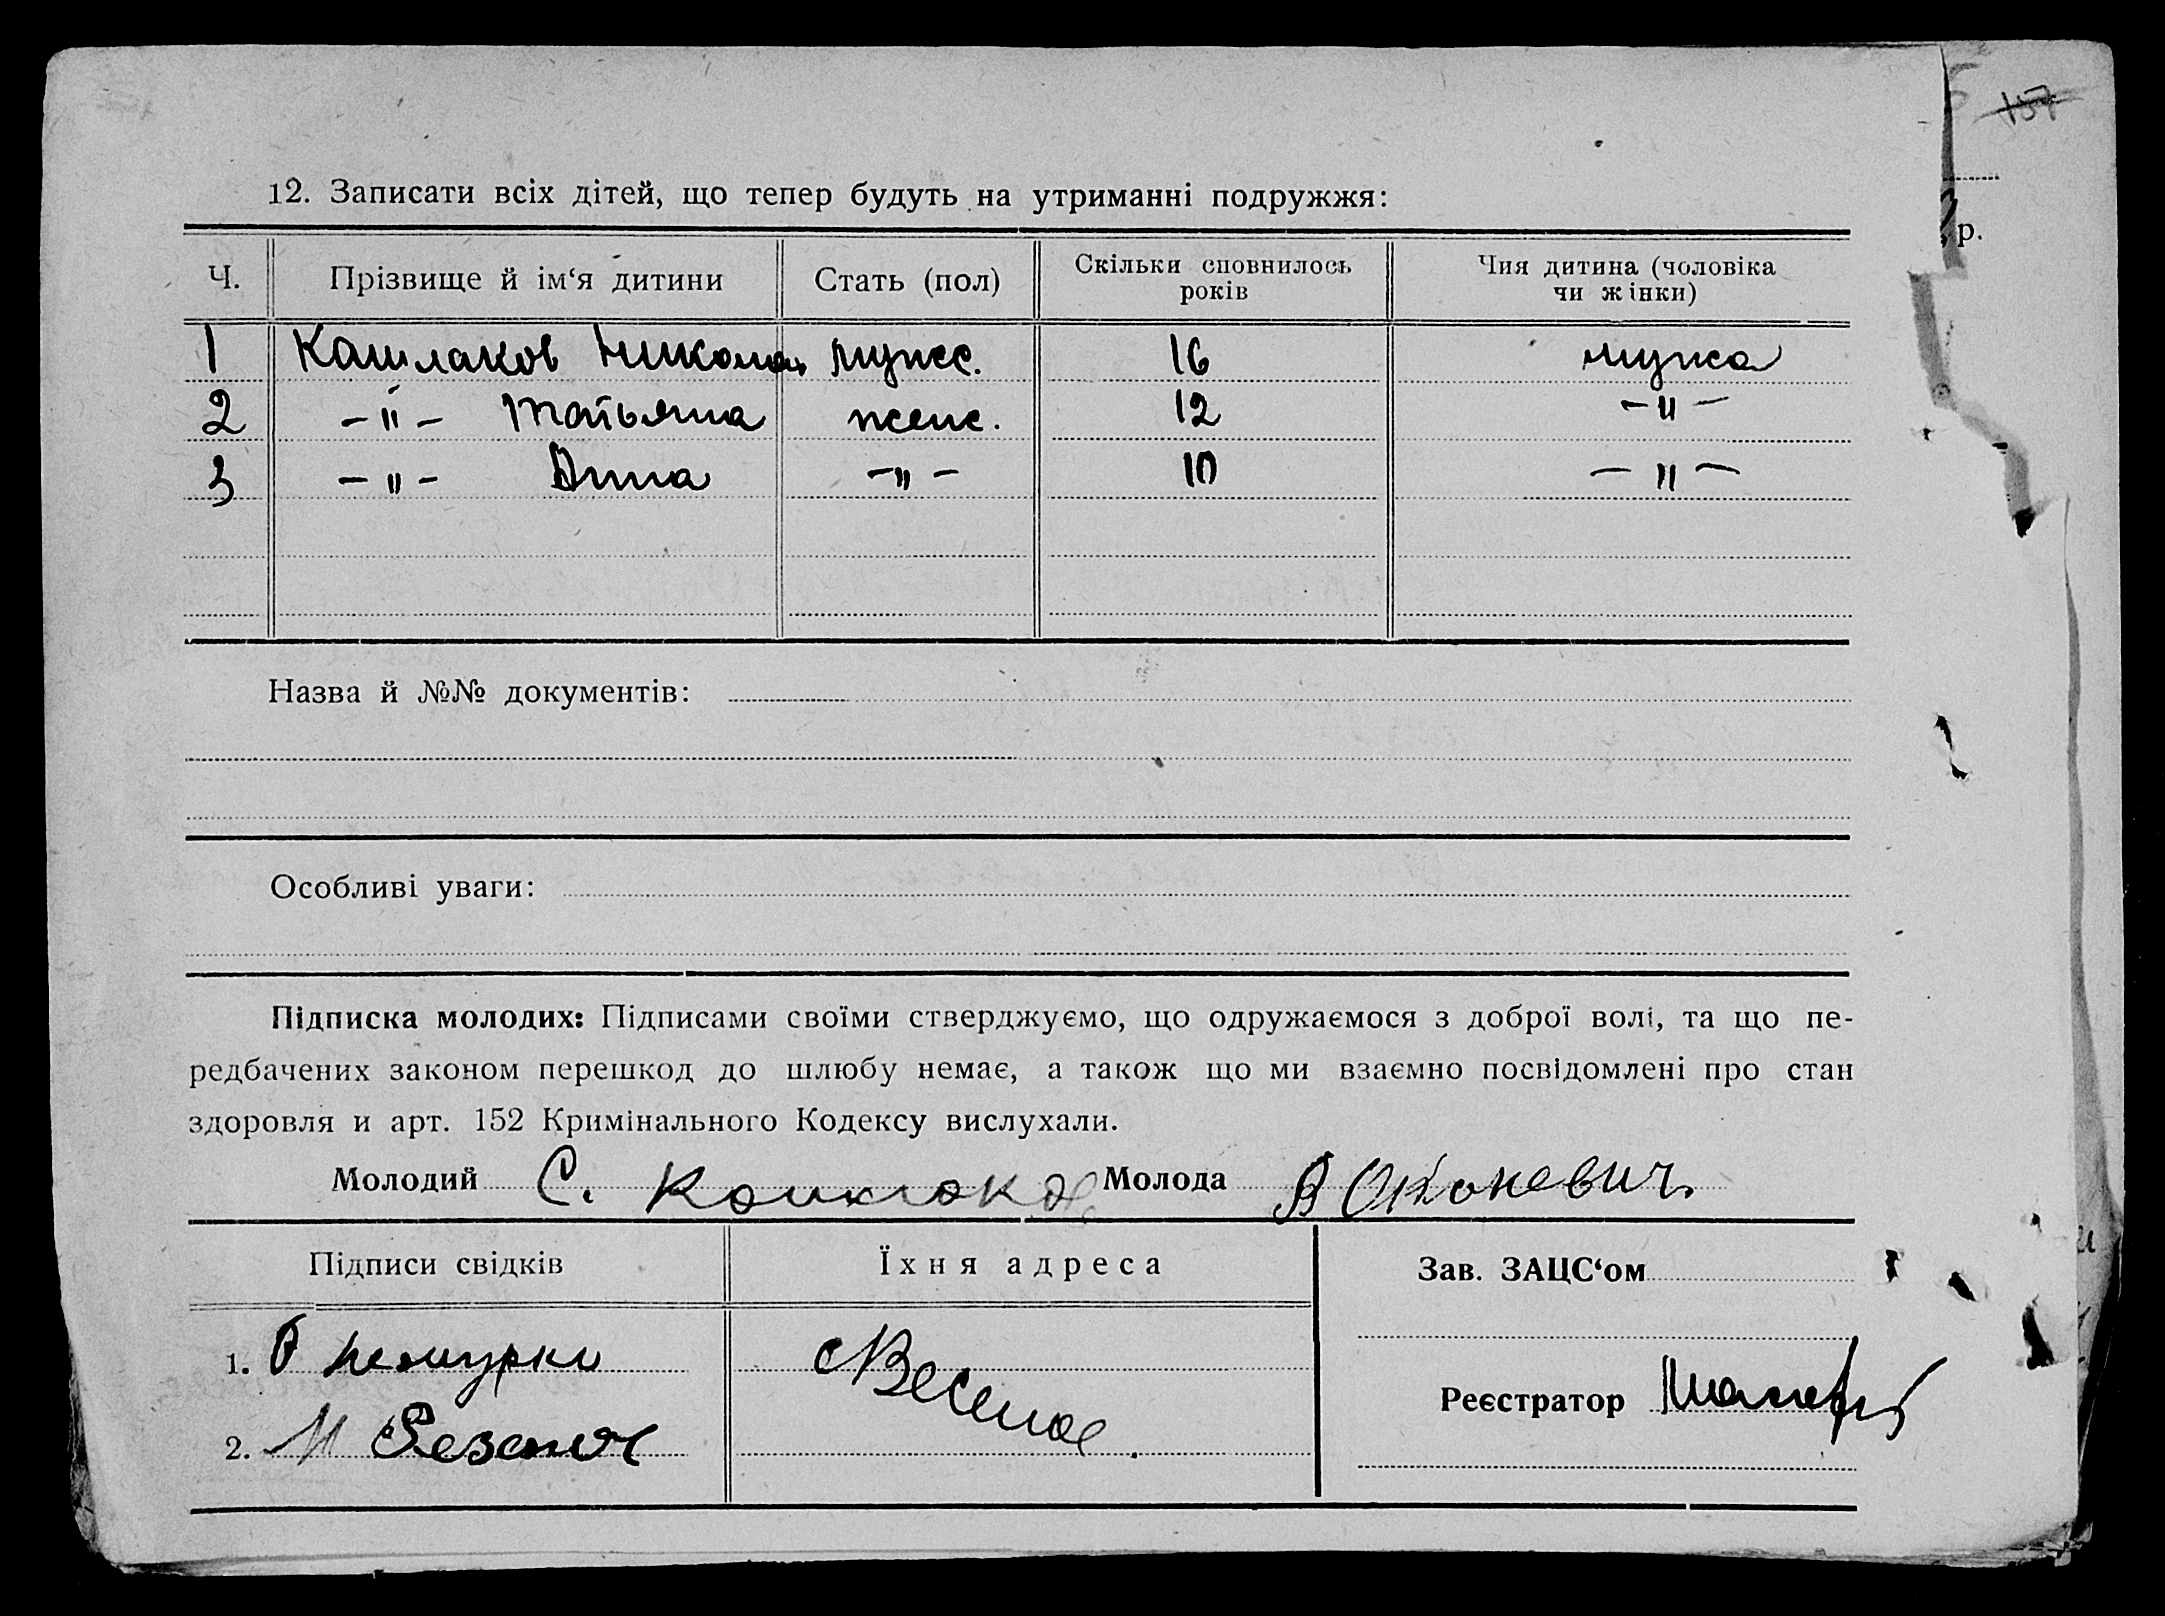 157
р.
12. Записати всіх дітей, що тепер будуть на утриманні подружжя:
Ч. Прізвище й ім‘я дитини Стать (пол) Скільки сповнилось років Чия дитина (чоловіка чи жінки)
1 Кашлаков Николай мужс. 16 мужа
2 -"- Татьяна женс. 12 -"-
3 -"- Анна -"- 10 -"-
Назва й №№ документів:
Особливі уваги:
Підписка молодих: Підписами своїми стверджуємо, що одружаємося з доброї волі, та що пе-
редбачених законом перешкод до шлюбу немає, а також що ми взаємно посвідомлені про стан
здоровля и арт. 152 Кримінального Кодексу вислухали.
Молодий С. Молода
Підписи свідків Їхня адреса Зав. ЗАЦС‘ом
1.
Реєстратор
2. М